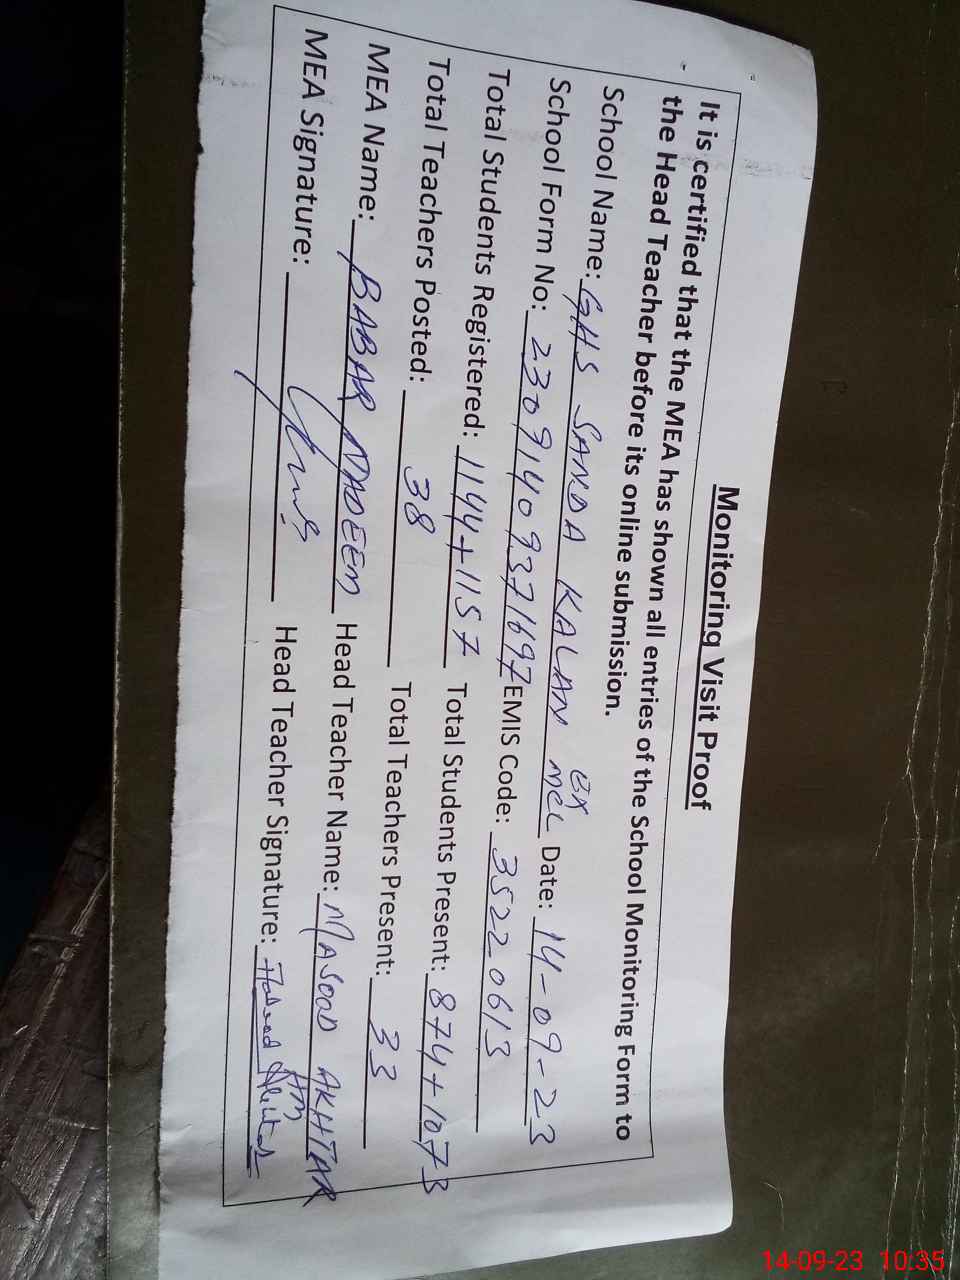 Monitoring Visit Proof
It is certified that the MEA has shown all entries of the School Monitoring Form to
the Head Teacher before its online submission.
School Name: GHS SANDA KALAN EX MCL Date: 14-09-23
School Form No: 23091409371697 EMIS Code: 35220613
Total Students Registered: 1144+1157 Total Students Present: 874+1073
Total Teachers Posted: 38 Total Teachers Present: 33
MEA Name: BABAR NADEEM Head Teacher Name: MASOOD AKHTAR
MEA Signature: Head Teacher Signature:
14-09-23 10:35